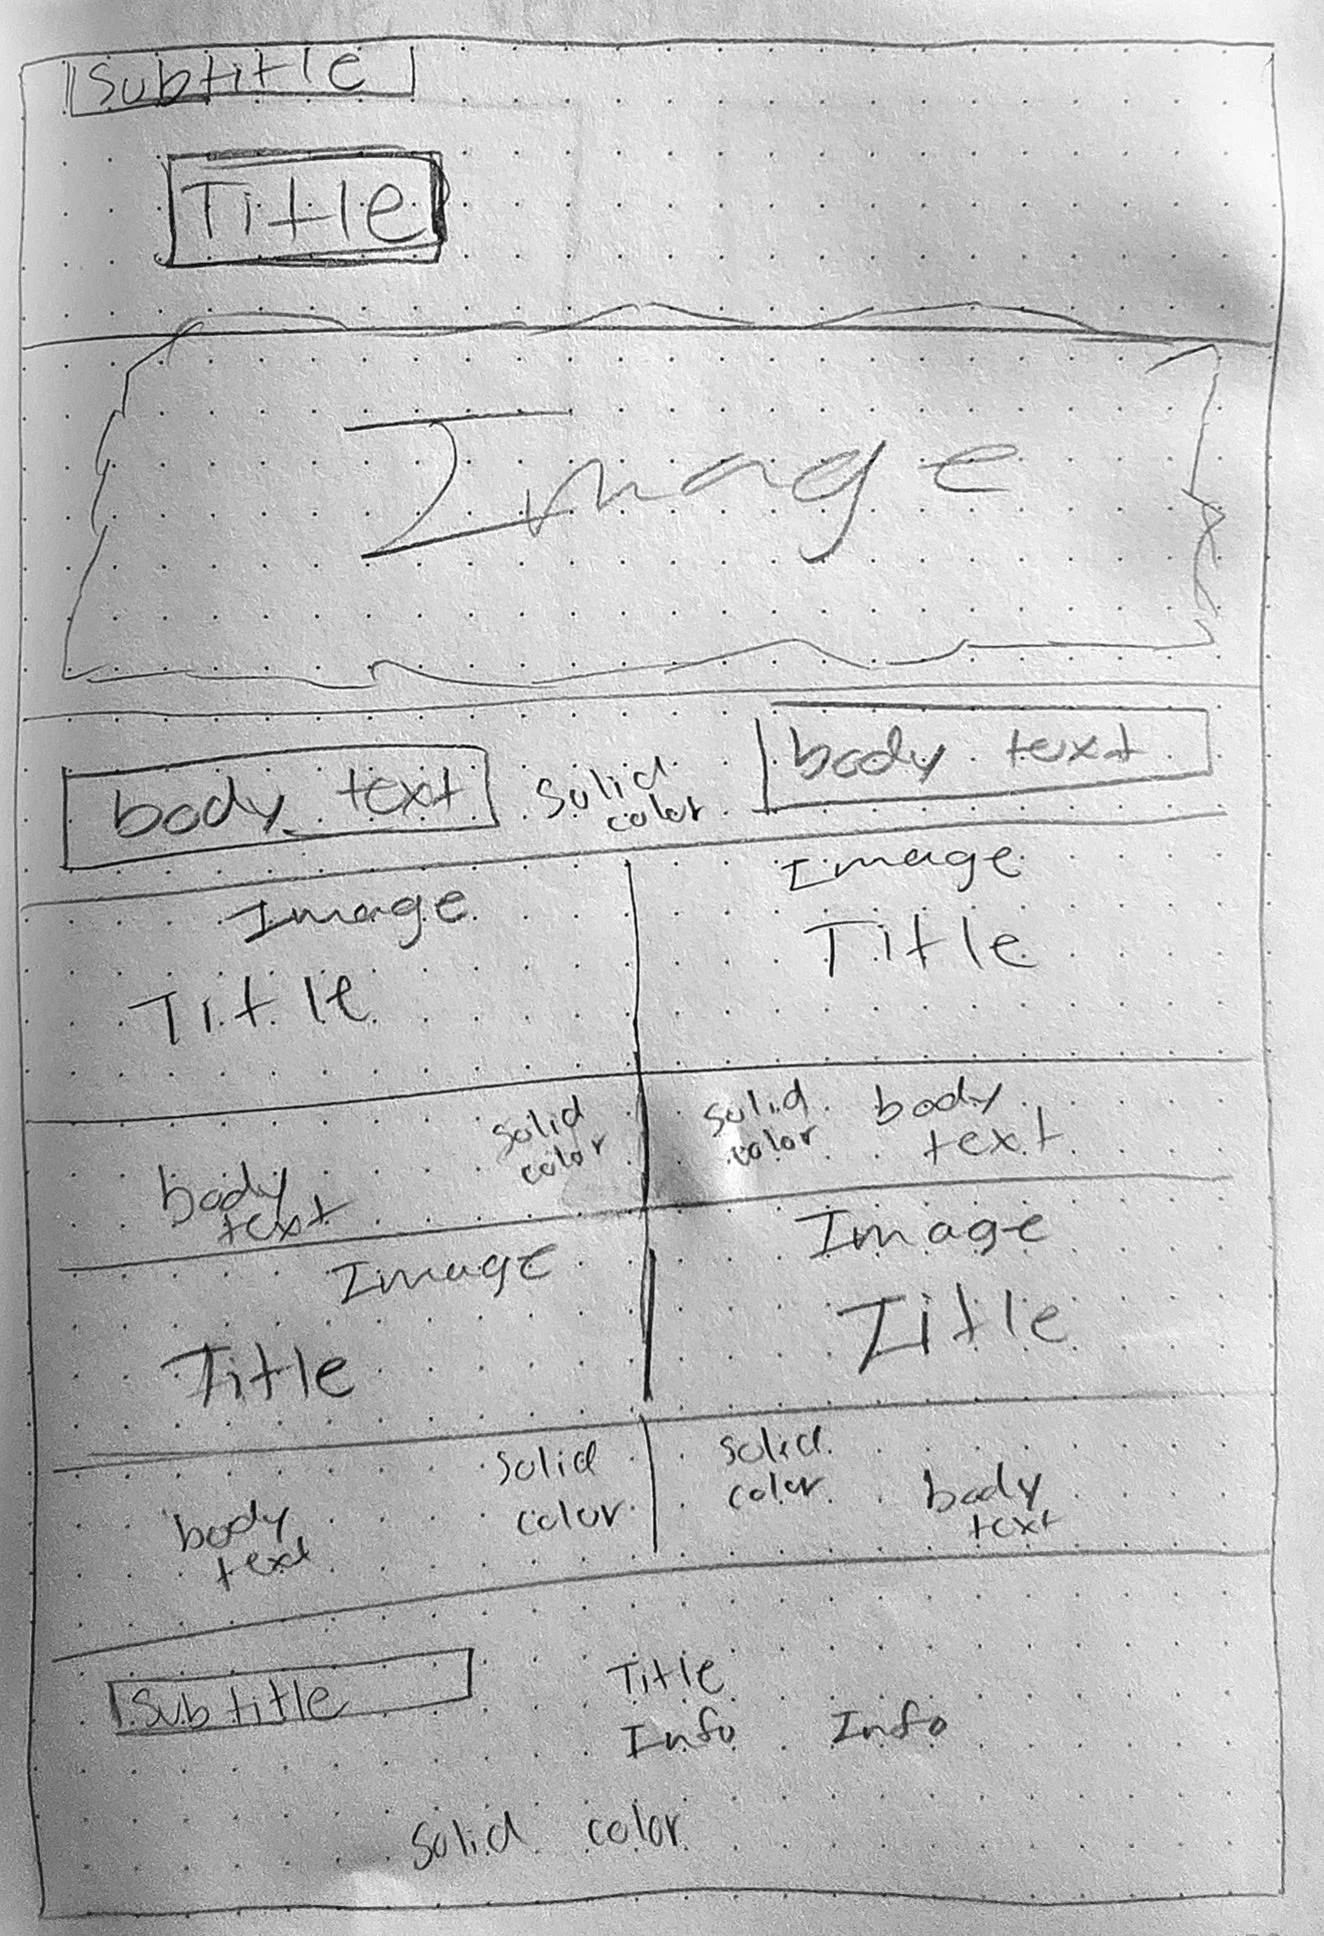 Subtitle
Title
Image
body text
solid
color
body text
Image
Title
Image
Title
body
text
solid
color
solid
color
body
text
Image
Title
Image
Title
body
text
solid
color
solid
color
body
text
Subtitle
Title
Info Info
solid color